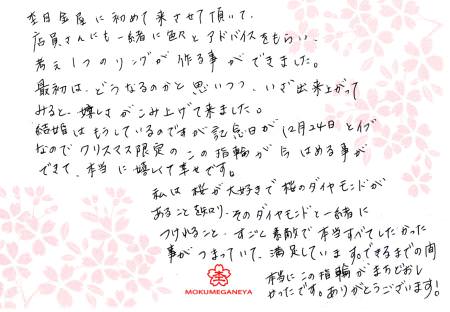 杢目金屋に初めて来させて頂いて、
店員さんにも一緒に色々とアドバイスをもらい、
考え1つのリングが作る事ができました。
最初は、どうなるのかと思いつつ、いざ出来上がって
みると、嬉しさがこみ上げて来ました。
結婚はもうしているのですが記念日が12月24日とイブ
なのでクリスマス限定のこの指輪が今はめる事が
できて、本当に嬉しくて幸せです。
私は桜が大好きで桜のダイヤモンドが
あること知り、そのダイヤモンドと一緒に
つけれること、すごく素敵で本当すべてしたかった
事がつまっていて、満足しています。できるまでの間
本当にこの指輪がまちどおし
かったです。ありがとうございます!
MOKUMEGANEYA